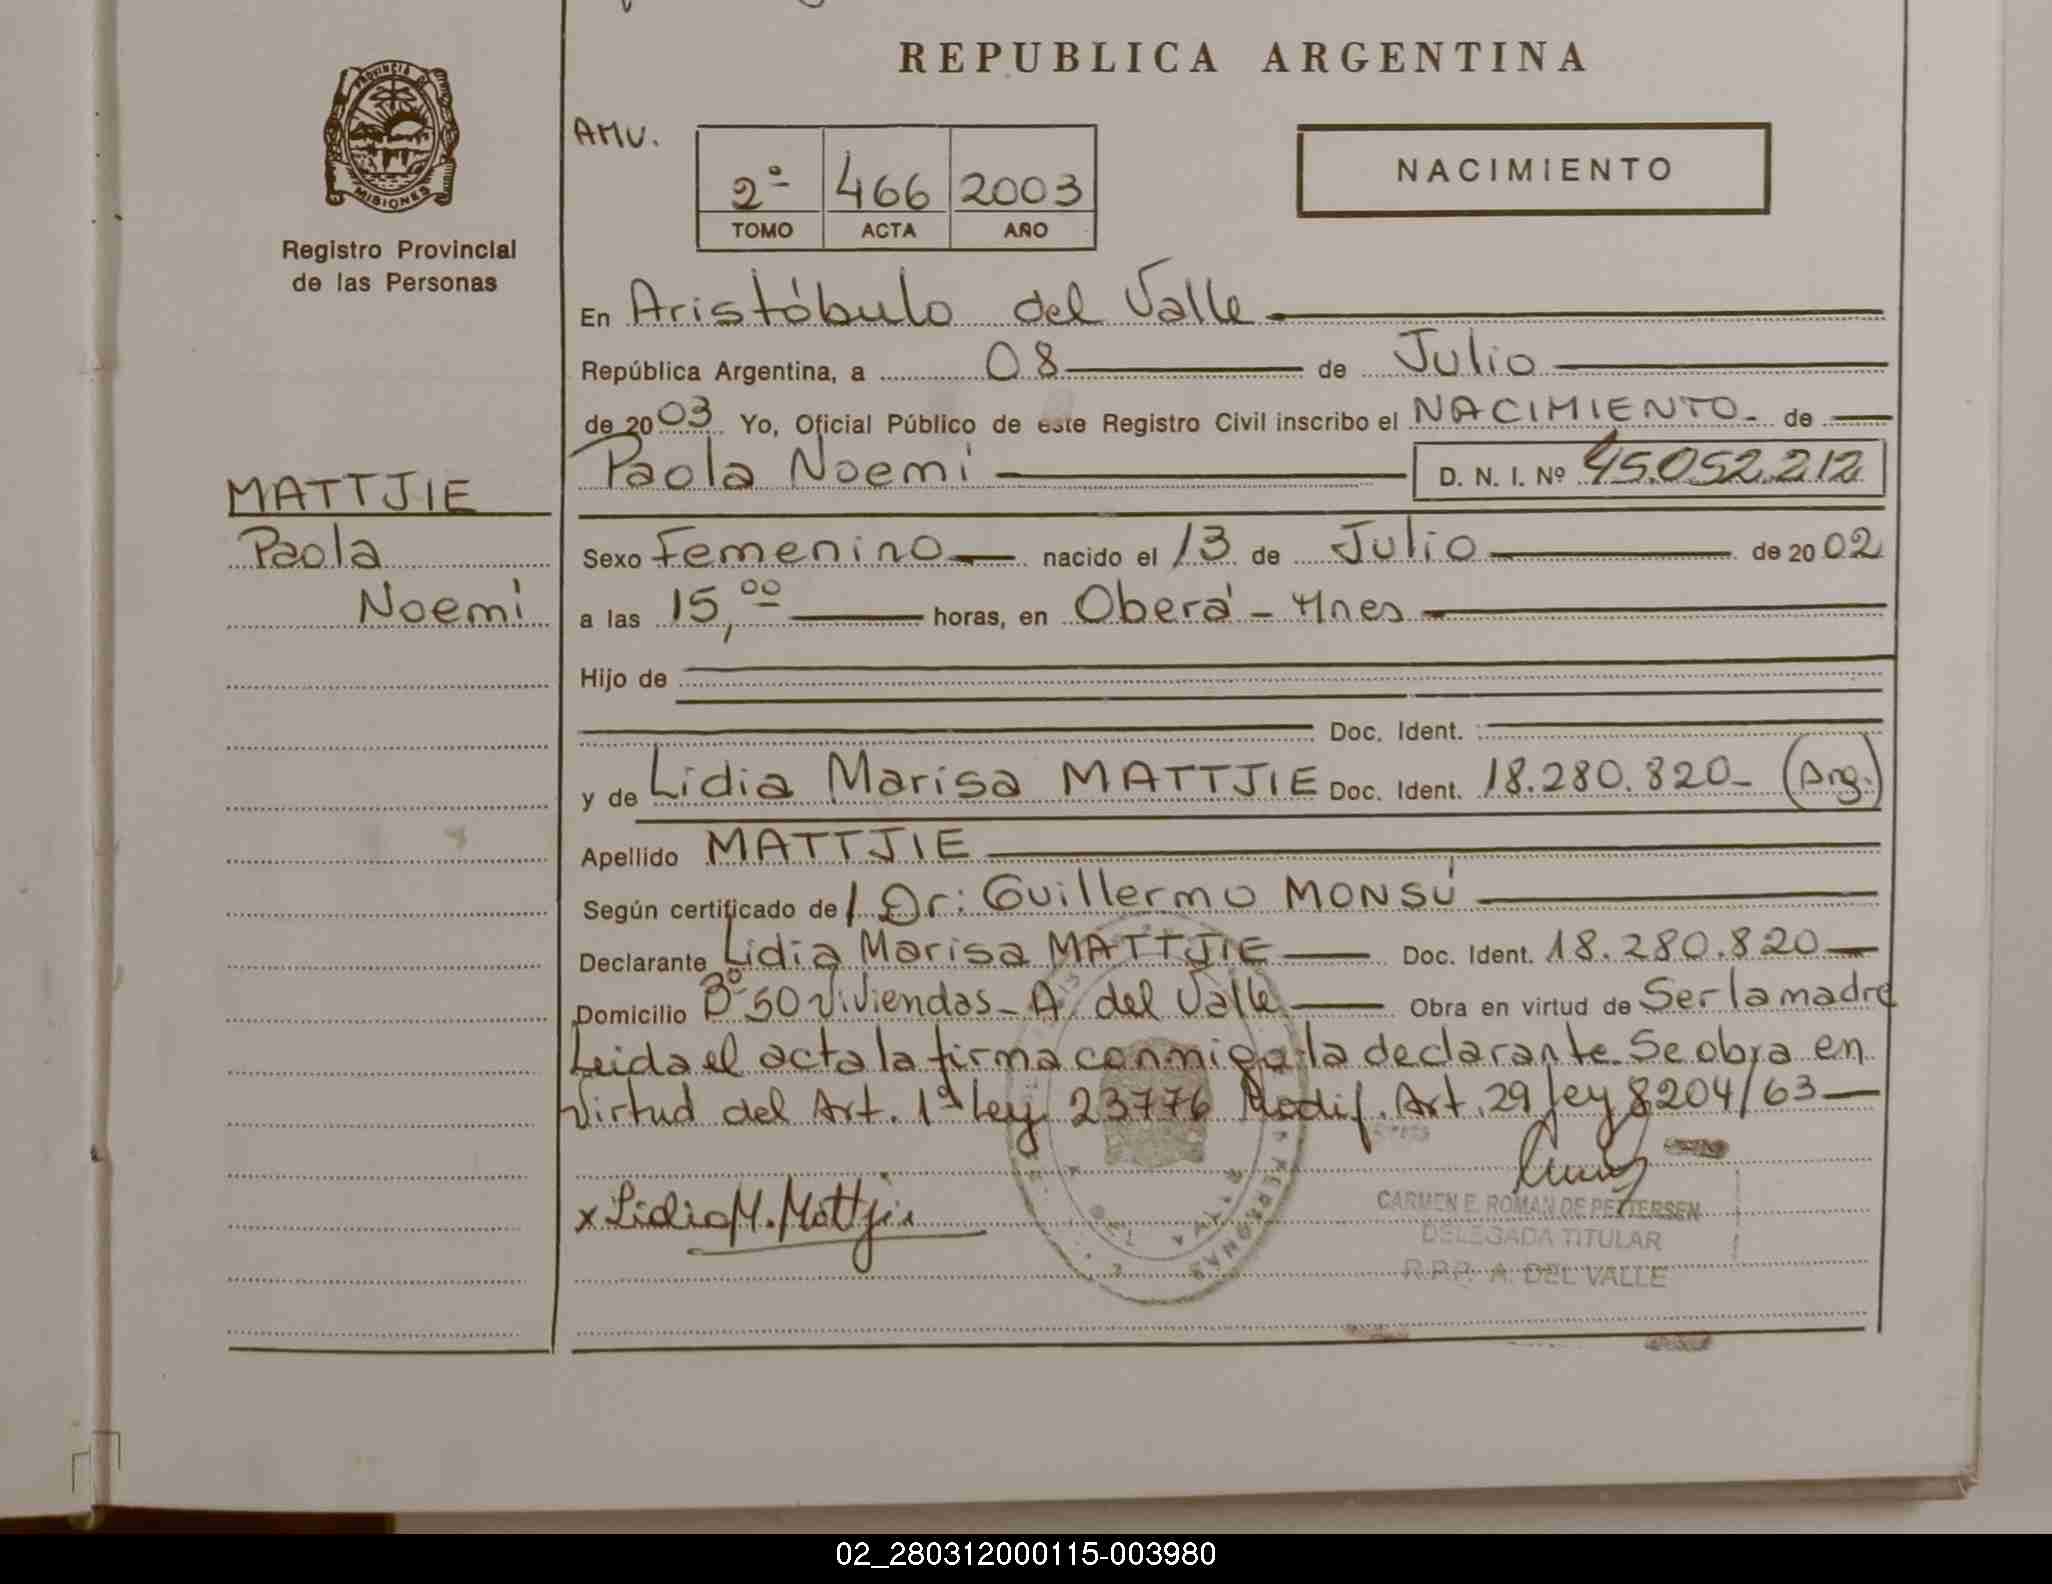 REPUBLICA ARGENTINA
PROVINCIA DE
MISIONES
Registro Provincial
de las Personas
AMU.
2º 466 2003
TOMO ACTA AÑO
NACIMIENTO
En Aristóbulo del Valle
República Argentina, a 08 de Julio
de 2003 Yo, Oficial Público de este Registro Civil inscribo el NACIMIENTO de
Paola Noemí D. N. I. Nº 45.052.212
MATTJIE
Paola
Noemí
Sexo Femenino nacido el 13 de Julio de 2002
a las 15,00 horas, en Oberá - Mnes
Hijo de
Doc. Ident.
y de Lidia Marisa MATTJIE Doc. Ident. 18.280.820 (Arg.)
Apellido MATTJIE
Según certificado de Dr: Guillermo MONSÚ
Declarante Lidia Marisa MATTJIE Doc. Ident. 18.280.820
Domicilio Bº 50 Viviendas - A. del Valle Obra en virtud de Ser la madre
Leida el acta la firma conmigo la declarante. Se obra en
Virtud del Art. 1º Ley 23776 Modif. Art. 29 Ley 8204/63
x Lidia M. Mattjie
CARMEN E. ROMAN DE PETTERSEN
DELEGADA TITULAR
R.P.P. A. DEL VALLE
02_280312000115-003980